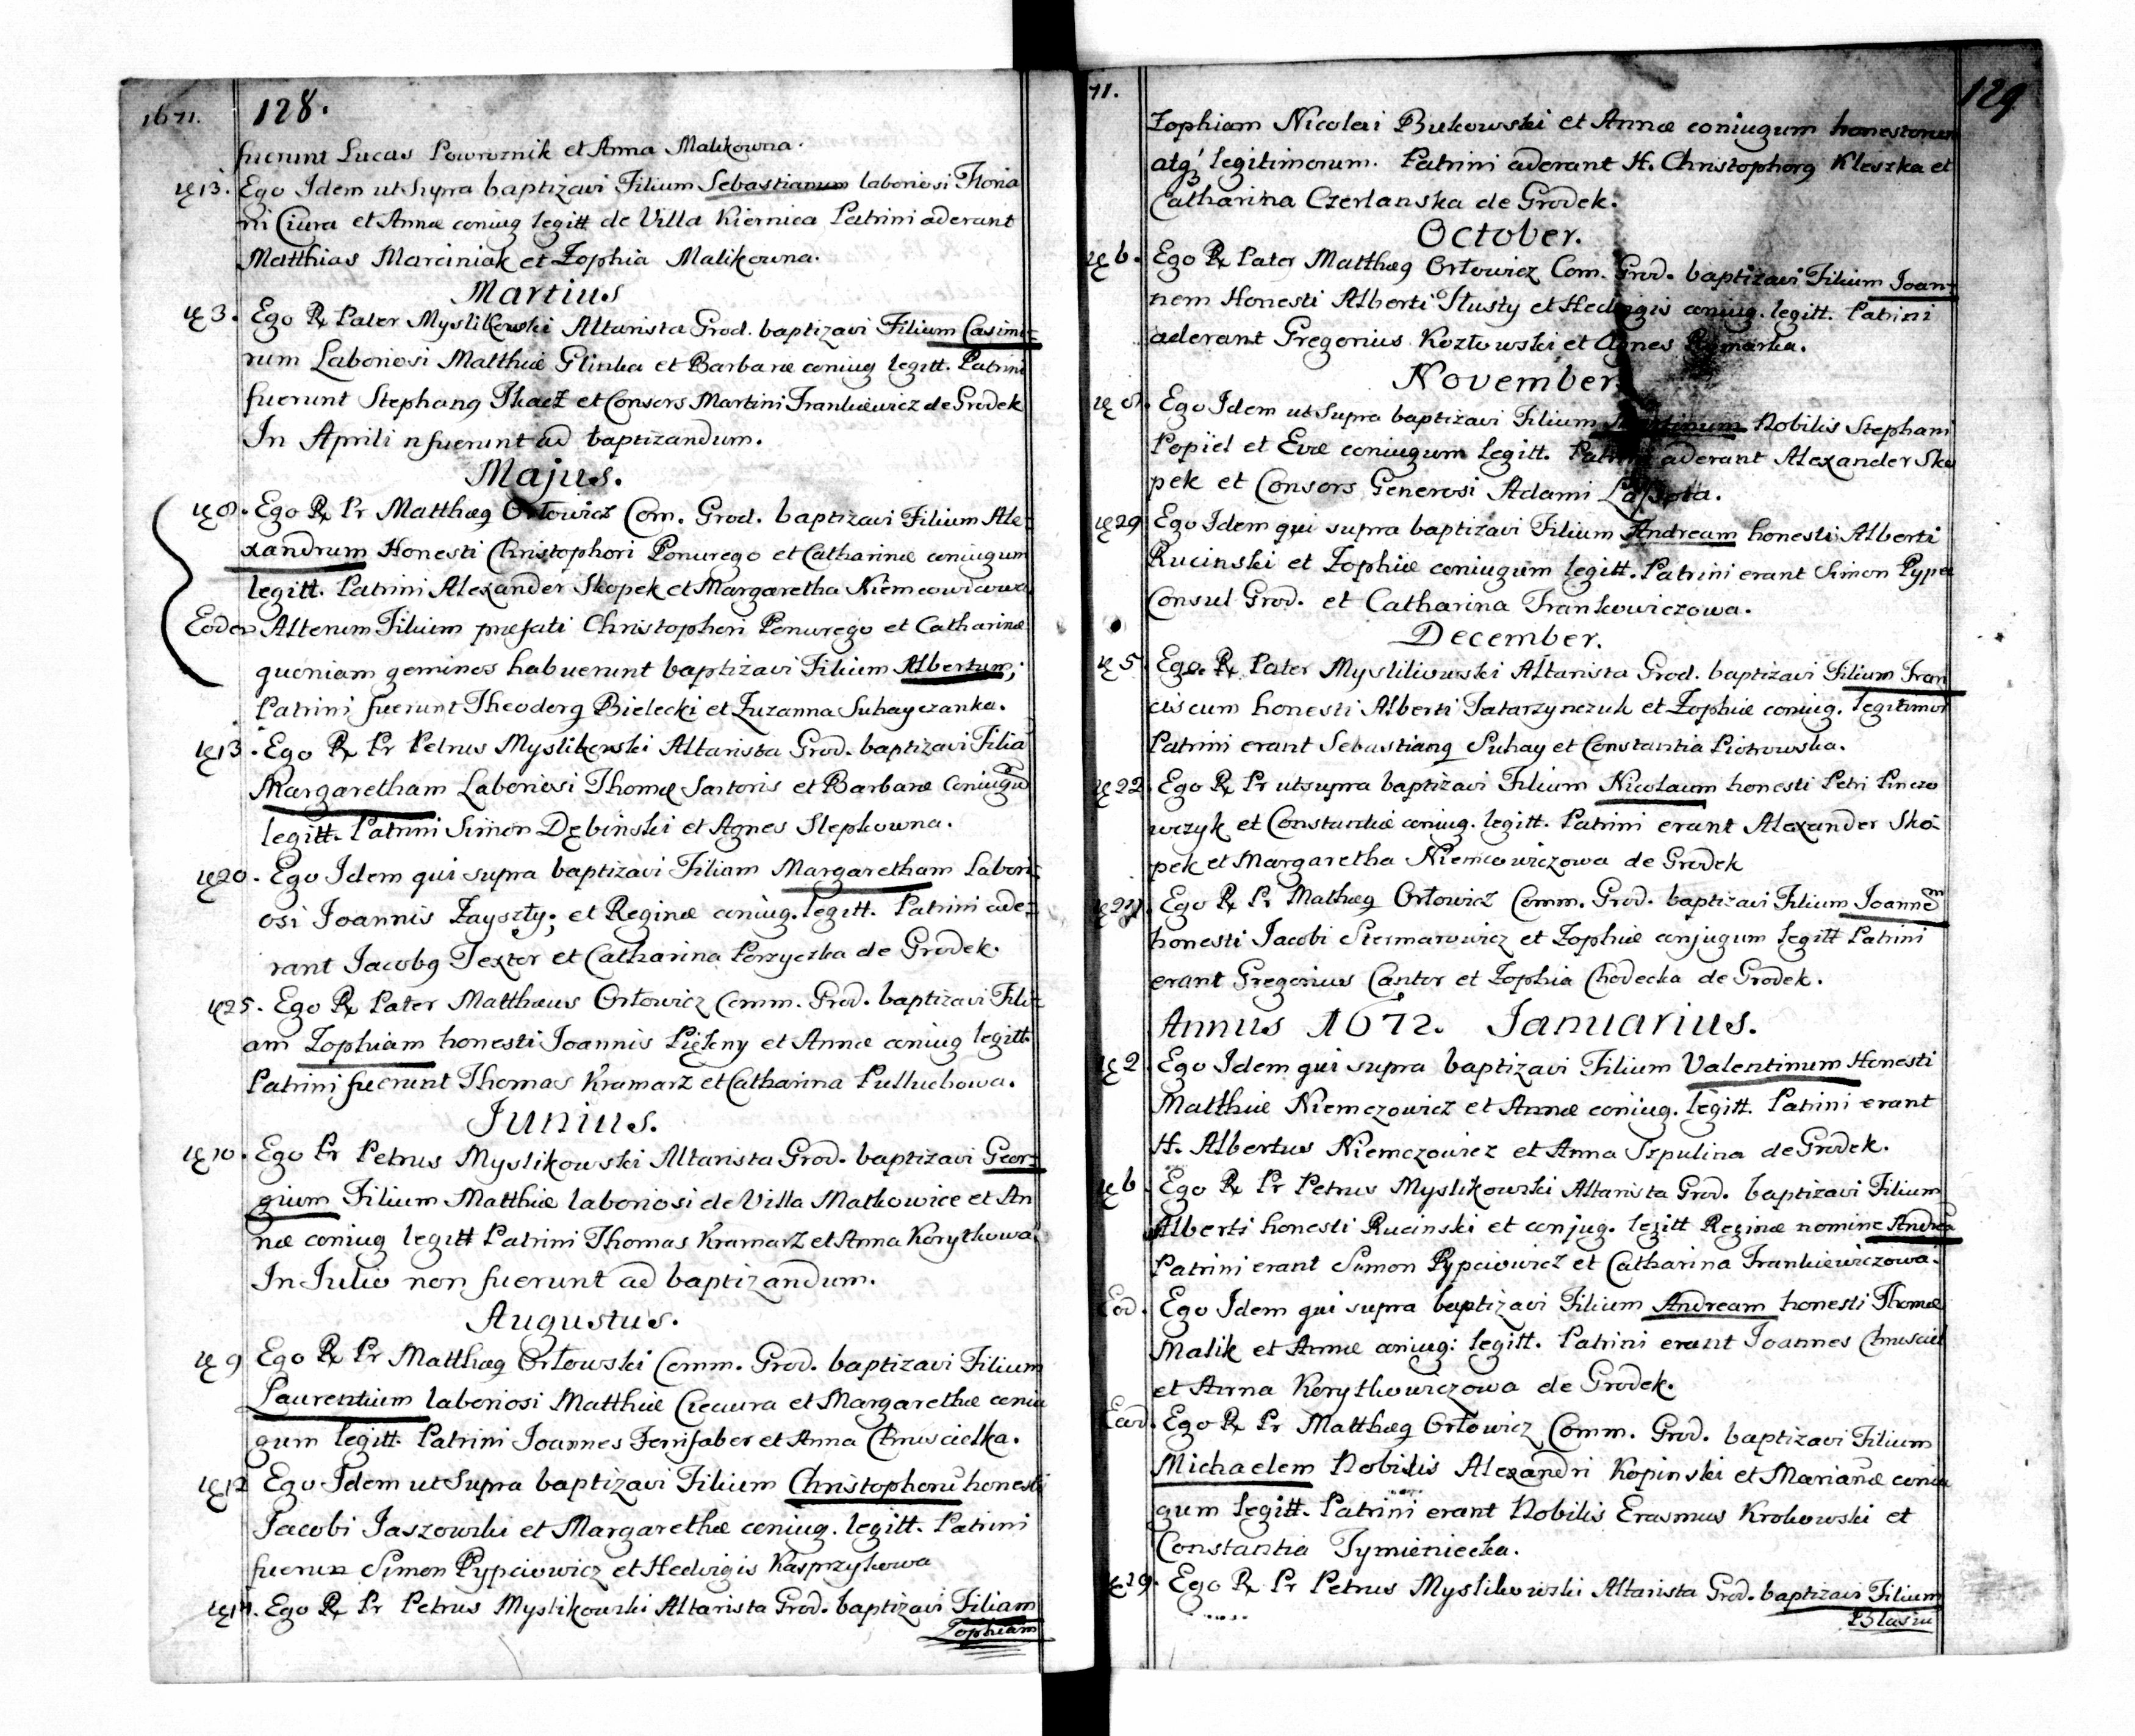 1671. 128.
fuerunt Lucas Powroznik et Anna Malikowna.
13. Ego Idem ut Supra baptizavi Filium Sebastianum laboriosi Floria
ni Ciura et Annæ coniug legitt de Villa Kiernica Patrini aderant
Matthias Marciniak et Zophia Malikowna.
Martius
3. Ego Pater Myslikowski Altarista Grod. baptizavi Filium Casimi=
rum Laboriosi Matthiæ Glinka et Barbaræ coniug legitt. Patrini
fuerunt Stephang Tkacz et Consors Martini Frankiewicz de Grodek
In Aprili n fuerunt ad baptizandum.
Majus.
8. Ego Pr Matthæg Orłowicz Com. Grod. baptizavi Filium Ale=
xandrum Honesti Christophori Ponurego et Catharinæ coniugum
legitt. Patrini Alexander Skopek et Margaretha
Eodem Alterum Filium prefati Christophori Ponurego et Catharinæ
quoniam geminos habuerunt baptizavi Filium Albertum;
Patrini fuerunt Theodorg Bielecki et Zuzanna Suhayczanka.
13. Ego Pr Petrus Myslikowski Altarista Grod. baptizavi Filia
Margaretham Laboriosi Thomæ Sartoris et Barbaræ Coniugū
legitt. Patrini Simon Dębinski et Agnes Slepkowna.
20. Ego Idem qui supra baptizavi Filiam Margaretham Labori=
osi Joannis Zayszły; et Reginæ coniug. legitt. Patrini ade=
rant Jacobg Textor et Catharina de Grodek.
25. Ego Pater Matthæus Orłowicz Comm. Grod. baptizavi Fili=
am Zophiam honesti Joannis et Annæ coniug legitt.
Patrini fuerunt Thomas Kramarz et Catharina Pulluchowa.
Junius.
10. Ego Pr Petrus Myslikowski Altarista Grod. baptizavi Geor=
gium Filium Matthiæ laboriosi de Villa Malkowice et An
næ coniug legitt Patrini Thomas Kramarz et Anna Korytkowa.
In Julio non fuerunt ad baptizandum.
Augustus.
9 Ego Pr Matthæg Orłowski Comm. Grod. baptizavi Filium
Laurentium laboriosi Matthiæ et Margarethæ coniu
gum legitt. Patrini Joannes Ferrifaber et Anna Chmiscielka.
12 Ego Idem ut Supra baptizavi Filium Christophorū honesti
Jacobi Jaszowski et Margarethæ coniug. legitt. Patrini
fuerun Simon Pypciowicz et Hedvigis Kasprzykowa
14. Ego Pr Petrus Myslikowski Altarista Grod. baptizavi Filiam
Zophiam
71. 129
Zophiam Nicolai Bukowski et Annæ coniugum honestorum
atq legitimorum. Patrini aderant H. Christophorg Kleszka et
Catharina Czerlanska de Grodek.
October.
6. Ego Pater Matthæg Orłowicz Com. Grod. baptizavi Filium Joan=
nem Honesti Alberti Tłusty et Hedvigis coniug. legitt. Patrini
aderant Gregorius Kozłowski et Agnes
November.
8. Ego Idem ut Supra baptizavi Filium Nobilis Stephani
Popiel et Evæ coniugum legitt. Patrini aderant Alexander Sko
pek et Consors Generosi Adami
29 Ego Idem qui supra baptizavi Filium Andream honesti Alberti
Rucinski et Zophiæ coniugum legitt. Patrini erant Simon
Consul Grod. et Catharina Frankowiczowa.
December.
5 Ego Pater Myslikowski Altarista Grod. baptizavi Filium Fran
ciscum honesti Alberti Tatarzynczuk et Zophiæ coniug. legitimor
Patrini erant Sebastiang Suhay et Constantia Piotrowska.
22. Ego Pr ut supra baptizavi Filium Nicolaum honesti Petri Pinczo
wczyk et Constantiæ coniug. legitt. Patrini erant Alexander Sko-
pek et Margaretha Niemcowiczowa de Grodek
27. Ego Pr Mathæg Orłowicz Comm. Grod. baptizavi Filium Joannē
honesti Jacobi et Zophiæ conjugum legitt Patrini
erant Gregorius Cantor et Zophia Chodecka de Grodek.
Annus 1672. Januarius.
2 Ego Idem qui supra baptizavi Filium Valentinum Honesti
Matthiæ Niemczowicz et Annæ coniug. legitt. Patrini erant
H. Albertus Niemczowicz et Anna Szpulina de Grodek.
6 Ego Pr Petrus Myslikowski Altarista Grod. baptizavi Filium
Alberti honesti Rucinski et conjug. legitt Reginæ nomine Andrea
Patrini erant Simon Pypciowicz et Catharina Frankiewiczowa.
Eod. Ego Idem qui supra baptizavi Filium Andream honesti Thomæ
Malik et Annæ coniug: legitt. Patrini erant Joannes
et Anna Korytkowiczowa de Grodek.
Eod. Ego Pr Matthæg Orłowicz Comm. Grod. baptizavi Filium
Michaelem Nobilis Alexandri Kopinski et Marianæ coniu
gum legitt. Patrini erant Nobilis Erasmus Krokowski et
Constantia Tymieniecka.
19. Ego Pr Petrus Myslikowski Altarista Grod. baptizavi Filium
Blasiu